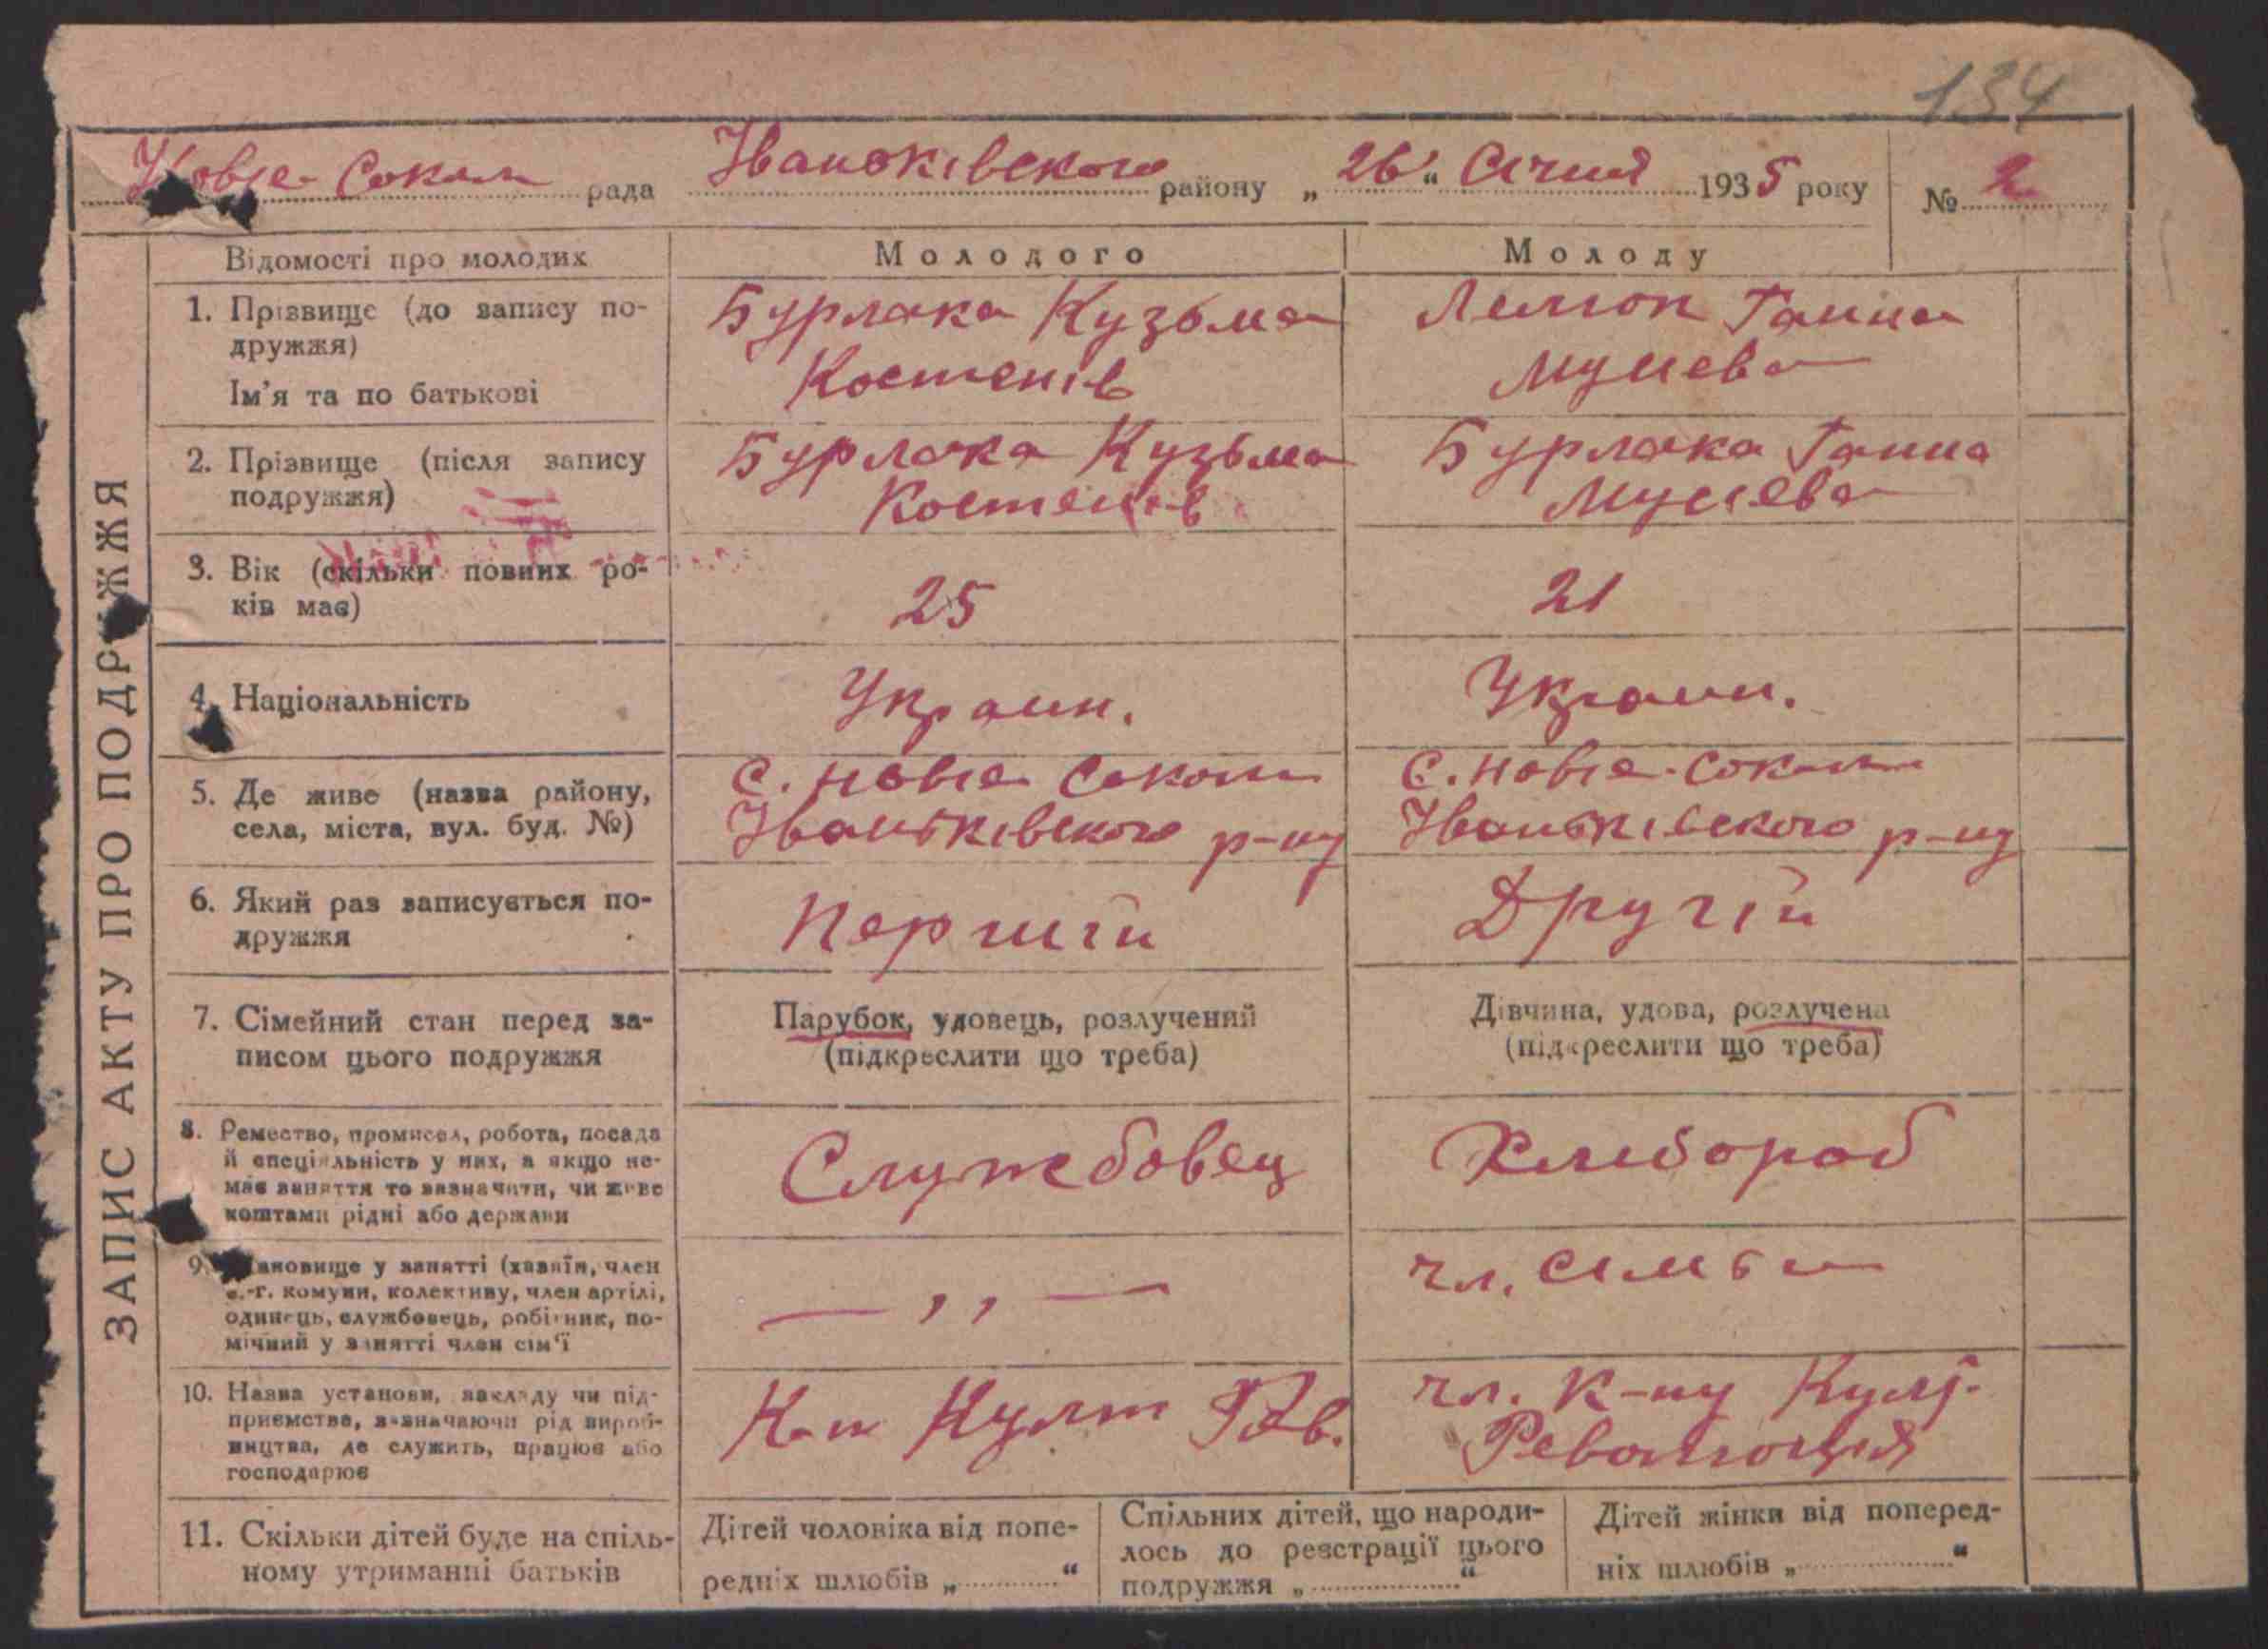 134
Новые-Соколи рада Іваньківского району „26“ Січня 1935 року № 2
ЗАПИС АКТУ ПРО ПОДРУЖЖЯ
Відомості про молодих
Молодого
Молоду
1. Прізвище (до запису по-
дружжя)
Ім'я та по батькові
Бурлака Кузьма
Костенів
Ганна
Мусієва
2. Прізвище (після запису
подружжя)
Бурлака Кузьма
Костенів
Бурлака Ганна
Мусієва
3. Вік (скільки повних ро-
ків має)
25
21
4. Національність
Украин.
Украин.
5. Де живе (назва району,
села, міста, вул. буд. №)
с. Новіе Соколи
Іваньківского р-ну
с. Новіе-Соколи
Іваньківского р-ну
6. Який раз записується по-
дружжя
Першій
Другій
7. Сімейний стан перед за-
писом цього подружжя
Парубок, удовець, розлучений
(підкреслити що треба)
Дівчина, удова, розлучена
(підкреслити що треба)
8. Ремество, промисел, робота, посада
й спеціяльність у них, а якщо не-
має заняття то зазначити, чи живе
коштами рідні або держави
Службовец
Хлибороб
9. становище у занятті (хазяїн, член
с.-г. комуни, колективу, член артілі,
одинець, службовець, робітник, по-
мічний у занятті член сім'ї
— ,, —
чл. сімьи
10. Назва установи, закладу чи під-
приємства, зазначаючи рід вироб-
ництва, де служить, працює або
господарює
К-п Культ Рев.
чл. к-пу Культ.
Революция
11. Скільки дітей буде на спіль-
ному утриманні батьків
Дітей чоловіка від попе-
редніх шлюбів „ “
Спільних дітей, що народи-
лось до реєстрації цього
подружжя „ “
Дітей жінки від поперед-
ніх шлюбів „ “